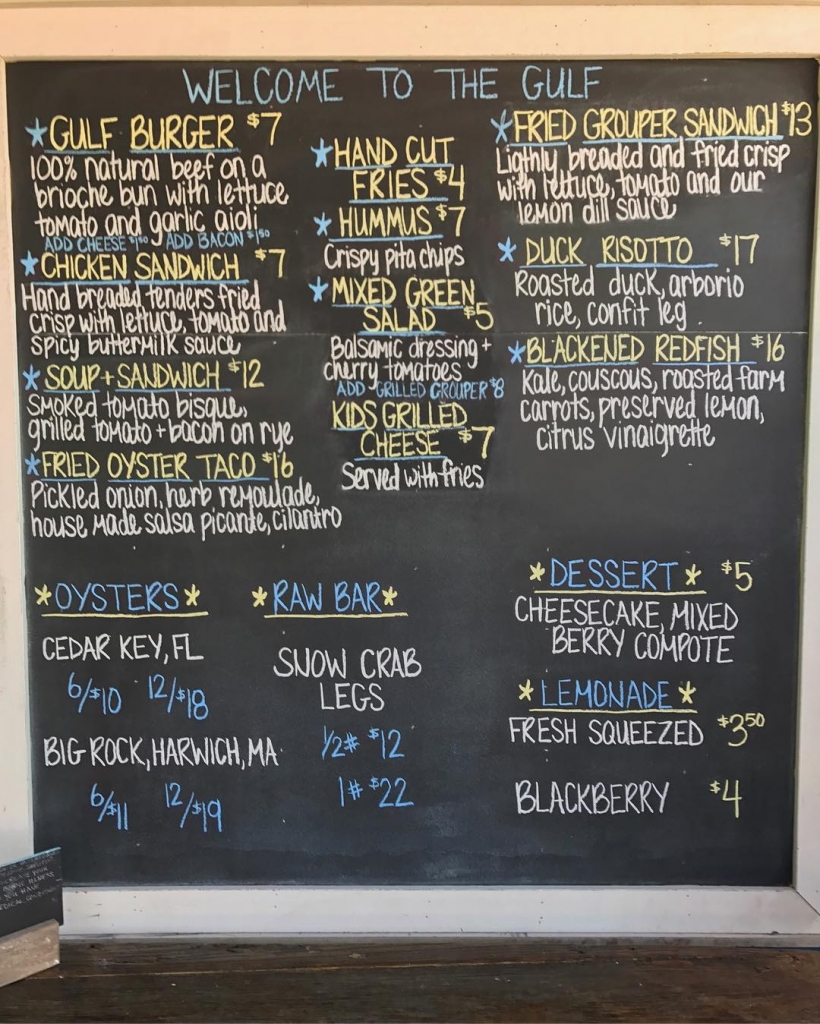 WELCOME TO THE GULF
*GULF BURGER $7
100% natural beef on a
brioche bun with lettuce
tomato and garlic aioli
ADD CHEESE $1.50 ADD BACON $1.50
*CHICKEN SANDWICH $7
Hand breaded tenders fried
crisp with lettuce, tomato and
spicy buttermilk sauce
*SOUP+SANDWICH $12
Smoked tomato bisque,
grilled tomato+bacon on rye
*FRIED OYSTER TACO $16
Pickled onion, herb remoulade,
house made salsa picante, cilantro
*HAND CUT
FRIES $4
*HUMMUS $7
Crispy pita chips
*MIXED GREEN
SALAD $5
Balsamic dressing +
cherry tomatoes
ADD GRILLED GROUPER $8
KIDS GRILLED
CHEESE $7
Served with fries
*FRIED GROUPER SANDWICH $13
Ligthly breaded and fried crisp
with lettuce, tomato and our
lemon dill sauce
*DUCK RISOTTO $17
Roasted duck, arborio
rice, confit leg
*BLACKENED REDFISH $16
Kale, couscous, roasted farm
carrots, preserved lemon,
citrus vinaigrette
*OYSTERS*
CEDAR KEY, FL
6/$10 12/$18
BIG ROCK, HARWICH, MA
6/$11 12/$19
*RAW BAR*
SNOW CRAB
LEGS
1/2# $12
1# $22
*DESSERT* $5
CHEESECAKE, MIXED
BERRY COMPOTE
*LEMONADE*
FRESH SQUEEZED $3.50
BLACKBERRY $4